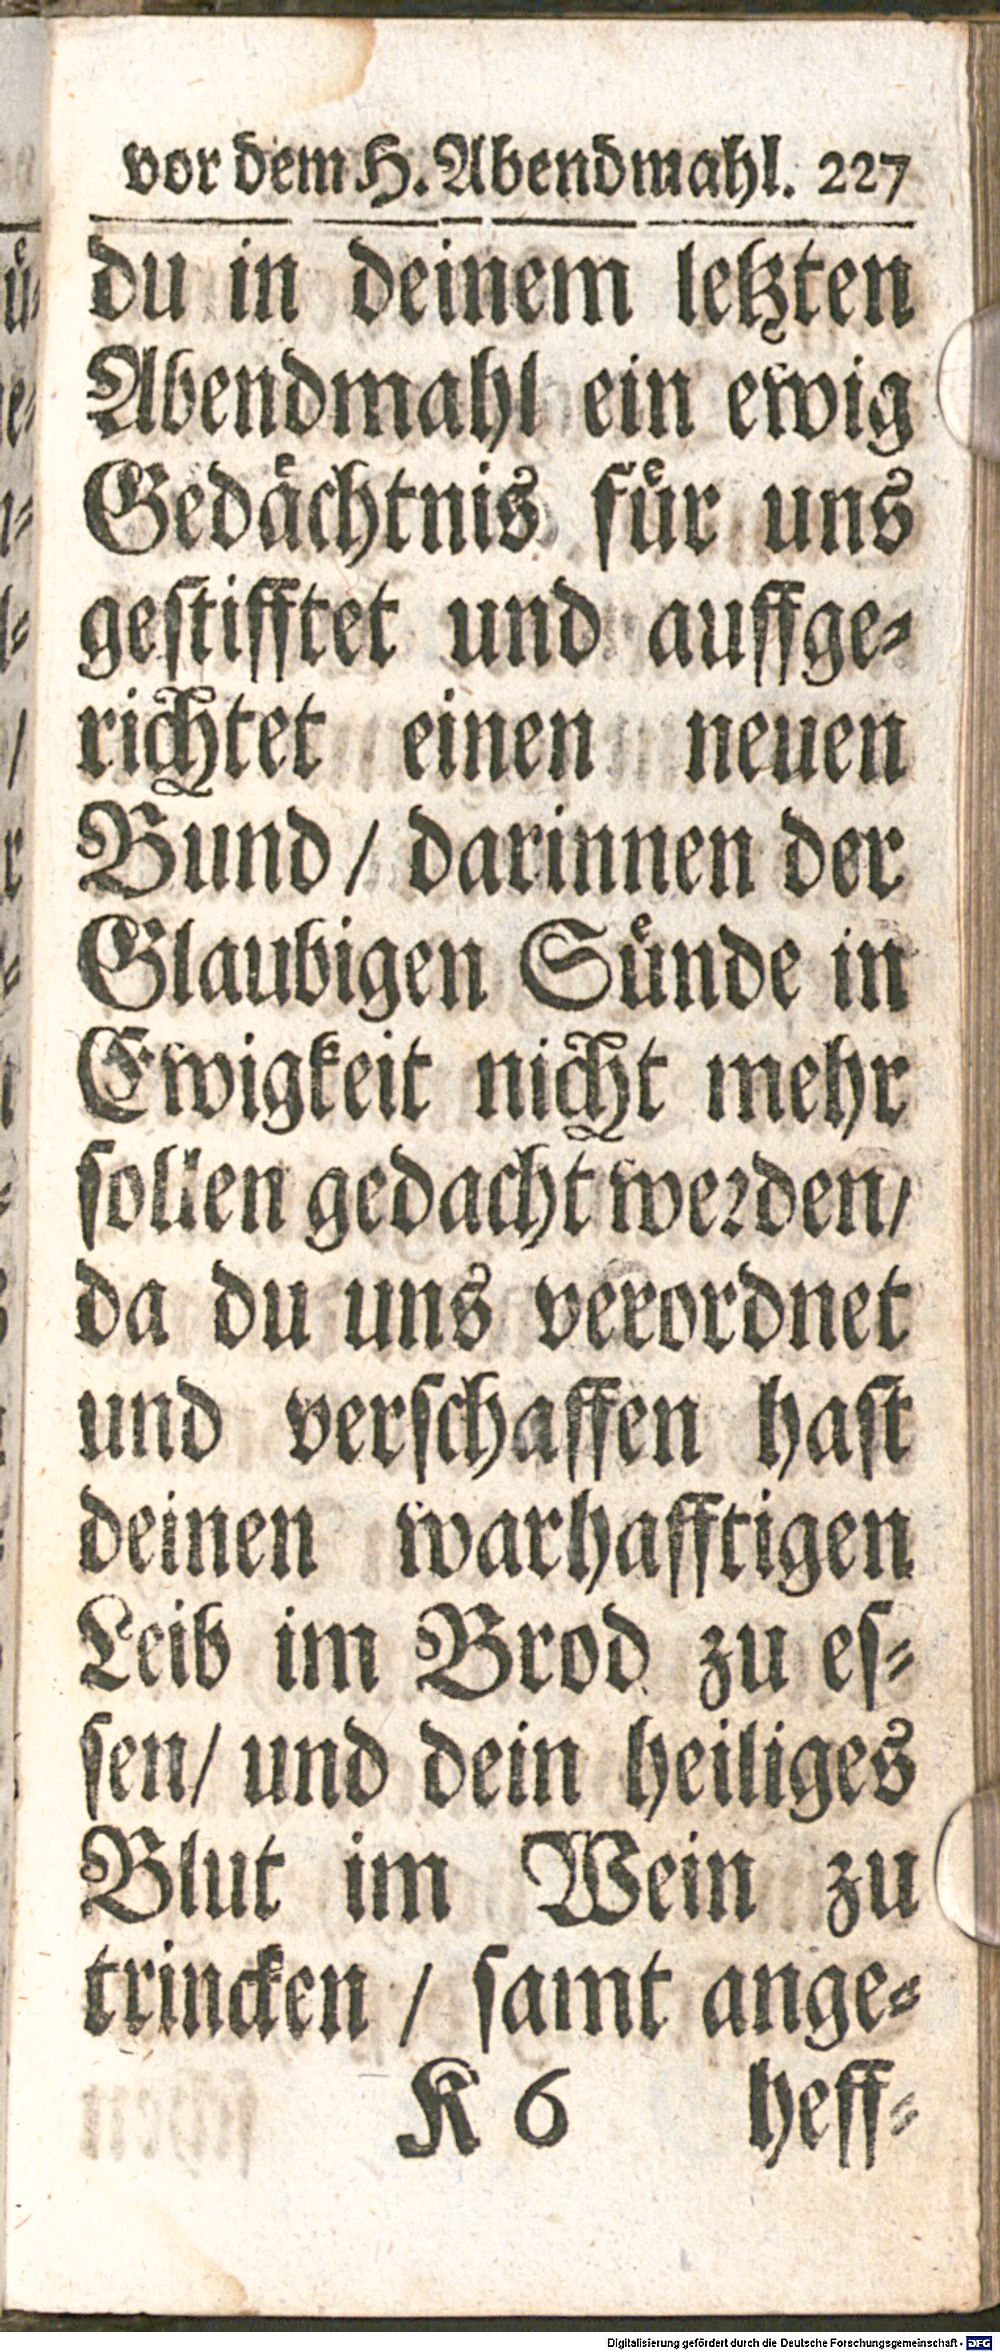 vor dem H. Abendmahl. 227
du in deinem letzten
Abendmahl ein ewig
Gedaͤchtnis fuͤr uns
geſtifftet und auffge⸗
richtet einen neuen
Bund / darinnen der
Glaubigen Suͤnde in
Ewigkeit nicht mehr
ſollen gedacht weꝛden/
da du uns verordnet
und verſchaffen haſt
deinen warhafftigen
Leib im Brod zu eſ⸗
ſen/ und dein heiliges
Blut im Wein zu
trincken / ſamt ange⸗
K 6 heff⸗
Digitalisierung gefördert durch die Deutsche Forschungsgemeinschaft - DFG